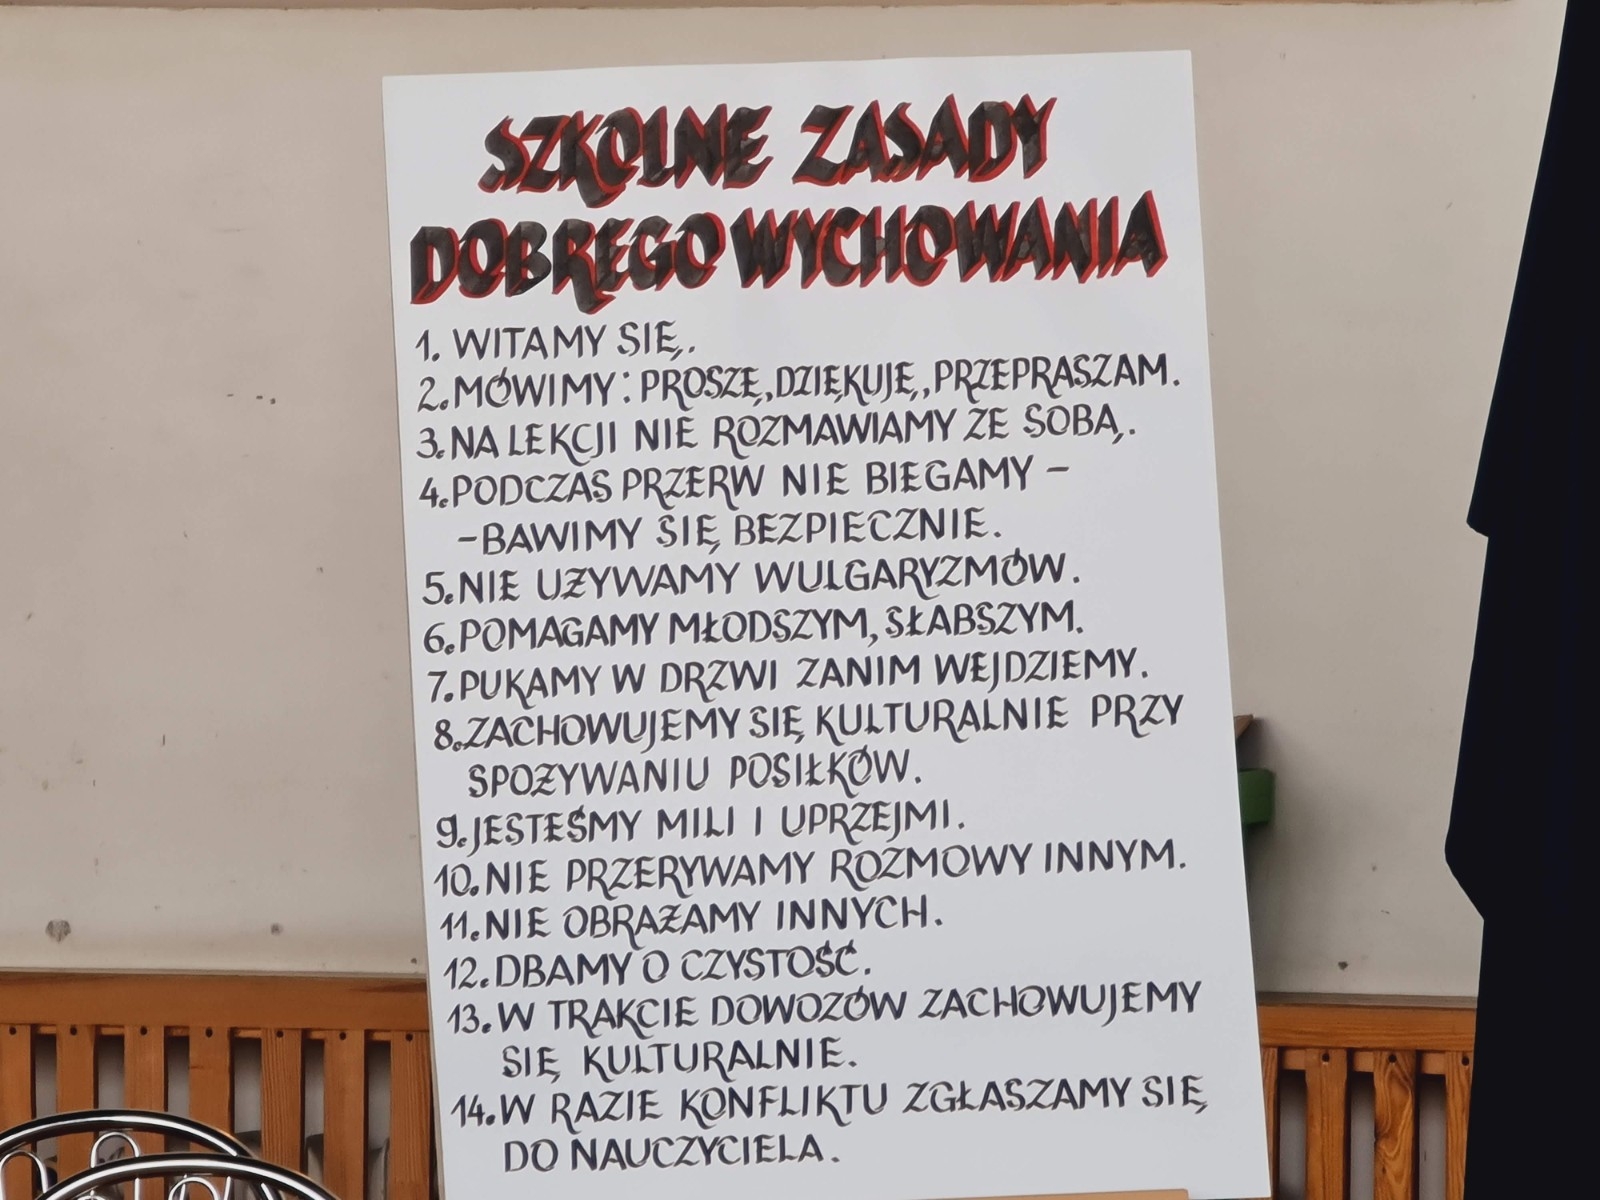 SZKOLNE ZASADY
DOBREGO WYCHOWANIA
1. WITAMY SIĘ.
2. MÓWIMY: PROSZĘ, DZIĘKUJĘ, PRZEPRASZAM.
3. NA LEKCJI NIE ROZMAWIAMY ZE SOBĄ.
4. PODCZAS PRZERW NIE BIEGAMY -
- BAWIMY SIĘ BEZPIECZNIE.
5. NIE UŻYWAMY WULGARYZMÓW.
6. POMAGAMY MŁODSZYM, SŁABSZYM.
7. PUKAMY W DRZWI ZANIM WEJDZIEMY.
8. ZACHOWUJEMY SIĘ KULTURALNIE PRZY
SPOŻYWANIU POSIŁKÓW.
9. JESTEŚMY MILI I UPRZEJMI.
10. NIE PRZERYWAMY ROZMOWY INNYM.
11. NIE OBRAŻAMY INNYCH.
12. DBAMY O CZYSTOŚĆ.
13. W TRAKCIE DOWOZÓW ZACHOWUJEMY
SIĘ KULTURALNIE.
14. W RAZIE KONFLIKTU ZGŁASZAMY SIĘ
DO NAUCZYCIELA.